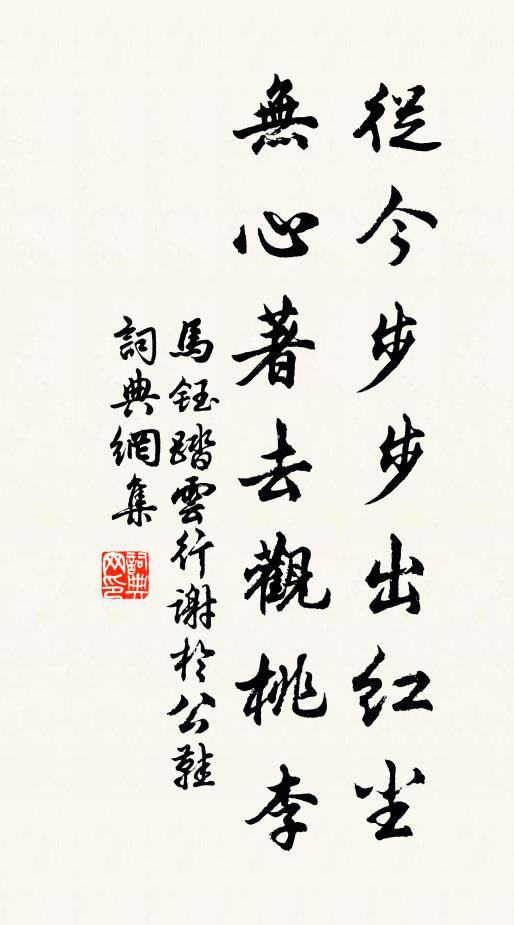 從今步步出紅尘
無心著去觀桃李
馬鈺踏雲行謝於公鞋
詞典網集
詞典网印